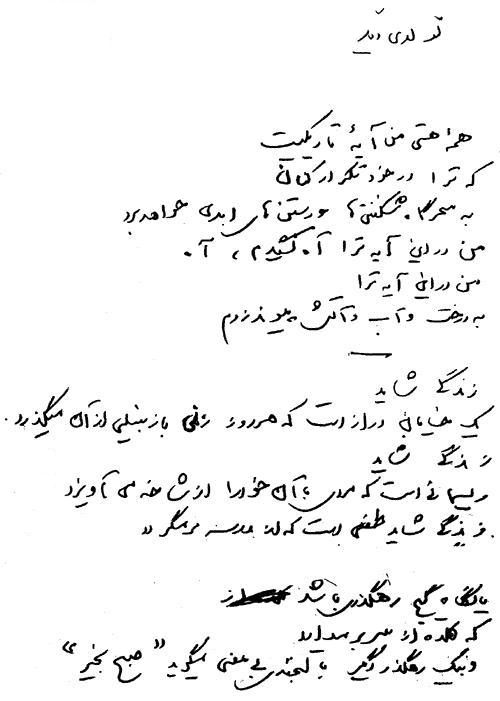 تولدی دیگر
همهٔ هستی من آیهٔ تاریکیست
که ترا در خود تکرار کنان
به سحرگاه شکفتن‌ها و رستن‌های ابدی خواهد برد
من در این آیه ترا آه کشیدم، آه
من در این آیه ترا
به درخت و آب و آتش پیوند زدم
زندگی شاید
یک خیابان درازست که هر روز زنی با زنبیلی از آن میگذرد.
زندگی شاید
ریسمانی است که مردی با آن خود را از شاخه می‌آویزد
زندگی شاید طفلی است که از مدرسه برمیگردد
یا نگاه گیج رهگذری باشد
که کلاه از سر بر میدارد
و بیک رهگذر دیگر با لبخندی بی‌معنی میگوید "صبح بخیر"